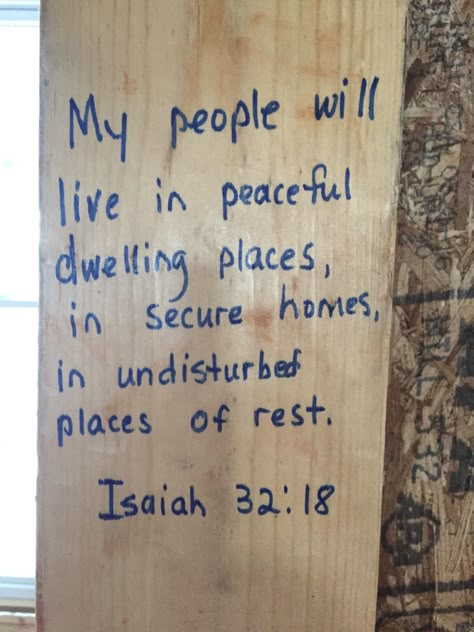 My people will
live in peaceful
dwelling places,
in secure homes,
in undisturbed
places of rest.
Isaiah 32:18